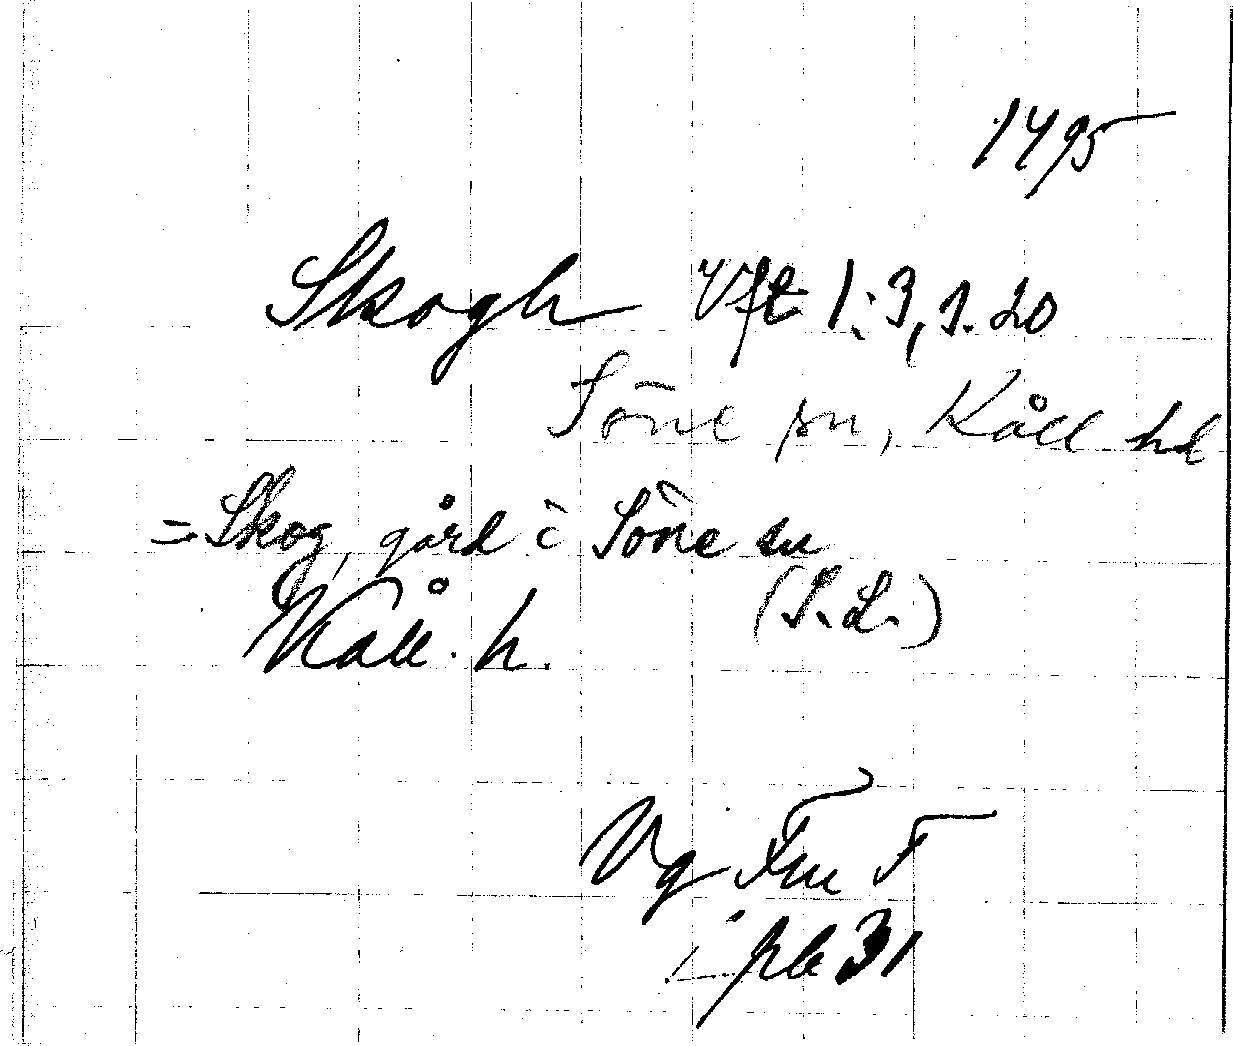 1495
Skogh Vft 1:3, s. 20
Söne sn, Kåll hd
= Skog, gård i Söne sn
Kåll. h. (S.L.)
Vg Fm F
pb 31